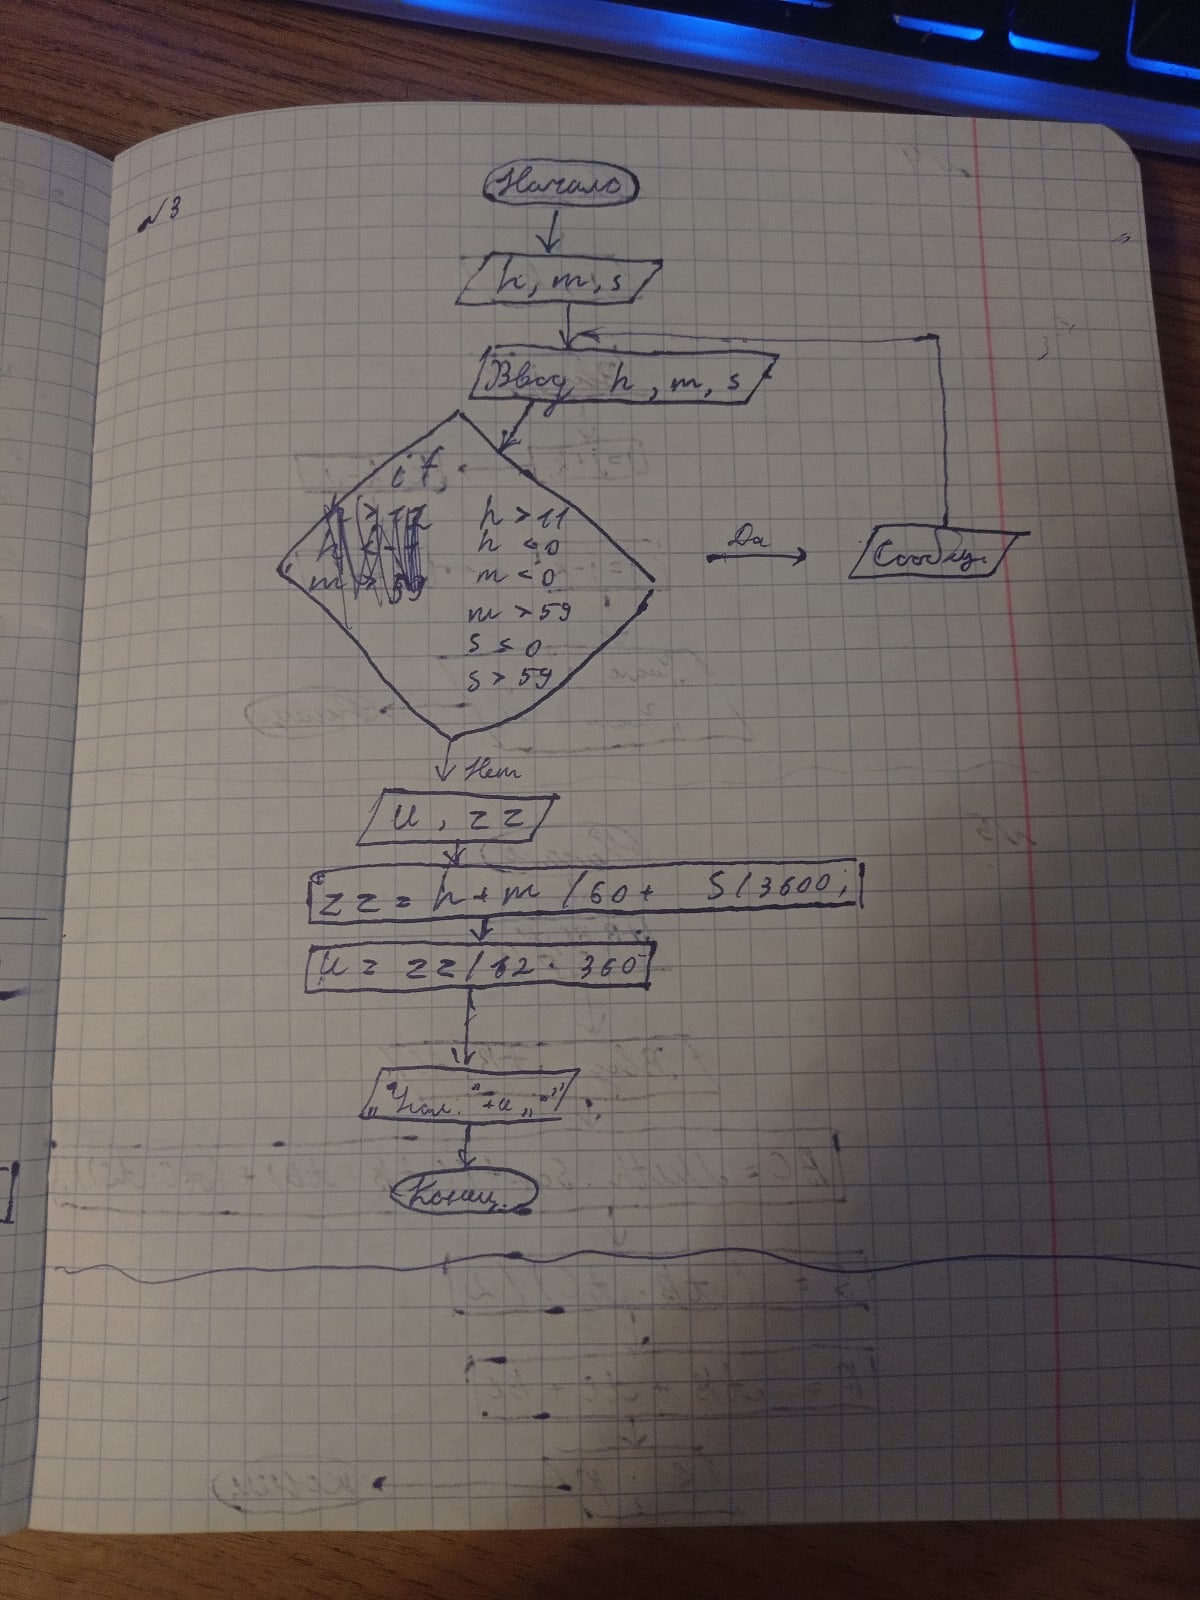 №3
Начало
h, m, s
Ввод h, m, s
if
h > 11
h < 0
m < 0
m > 59
s ≤ 0
s > 59
Да
Сообщ.
Нет
u, zz
zz = h + m / 60 + s / 3600;
u = zz / 12 · 360
+u
Конец